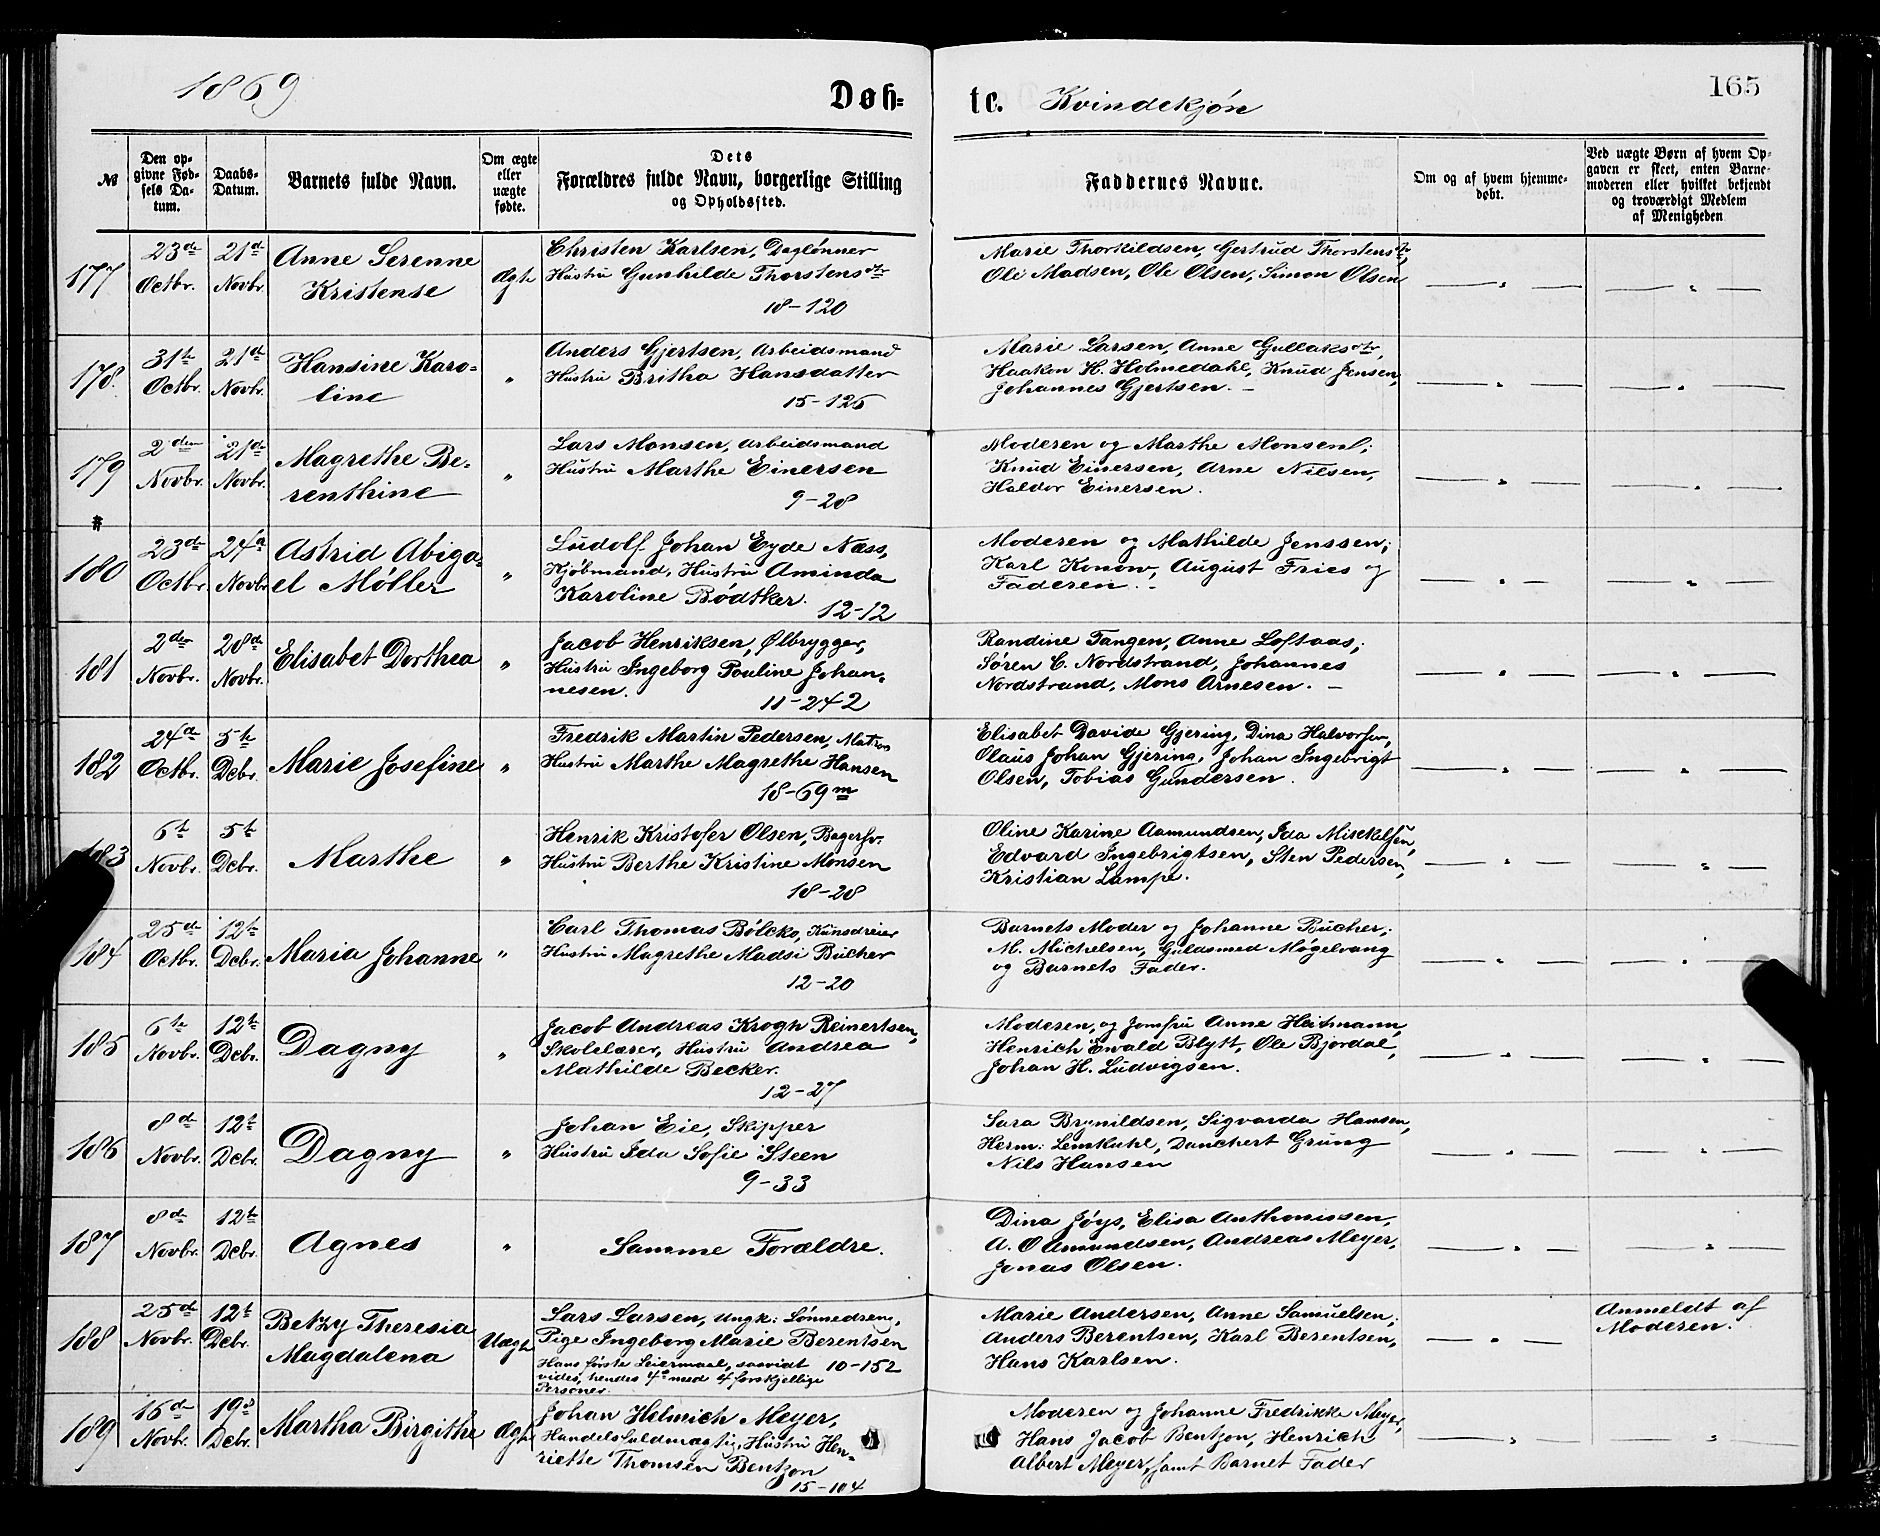 1869
Døb-
te.
Kvindekjøn
165
№
Den op-
givne Fød-
sels Da-
tum.
Daabs-
Datum.
Barnets fulde Navn.
Om ægte
eller
uægte
fødte.
Dets
Forældres fulde Navn, borgerlige Stilling
og Opholdssted.
Faddernes Navne.
Om og af hvem hjemme-
døbt.
Ved uægte Børn af hvem Op-
gaven er skeet, enten Barne-
moderen eller hvilket bekjendt
og troværdigt Medlem
af Menigheden
177
23de
Octbr.
21de
Novbr.
Anne Serenne
Kristense
Ægte
Christen Karlsen, Daglønner
Hustru Gunhilde Thorstensdtr
18-120
Marie Thorkildsen, Gertrud Thorstensdtr,
Ole Madsen, Ole Olsen, Simon Olsen
178.
31te
Octbr.
21de
Novbr.
Hansine Karo-
line
"
Anders Gjertsen, Arbeidsmand
Hustru Britha Hansdatter
15-126
Marie Larsen, Anne Gullaksdtr,
Haakon H. Holmedahl, Knud Jensen,
Johannes Gjertsen.
179
2den
Novbr.
21de
Novbr.
Magrethe Be-
renthine
"
Lars Monsen, Arbeidsmand
Hustru Marthe Einersen
9-28
Moderen og Marthe Monsen;
Knud Einersen, Arne Nilsen,
Haldor Einersen.
#
180
23de
Octbr.
24de
Novbr.
Astrid Abiga-
el Møller
"
Ludolf Johan Eyde Næss,
Kjøbmand, Hustru Aminda
Karoline Bødtker.
12-12
Moderen og Mathilde Jenssen;
Karl Konow, August Fries og
Faderen.
181
2den
Novbr.
28de
Novbr.
Elisabet Dorthea
"
Jacob Henriksen, Ølbrygger,
Hustru Ingeborg Pouline Johan-
nesen.
11-242
Randine Tangen, Anne Loftaas;
Søren C. Nordstrand, Johannes
Nordstrand, Mons Arnesen.
182
24de
Octbr.
5te
Dcbr.
Marie Josefine
"
Fredrik Martin Pedersen, Matros
Hustru Marthe Magrethe Hansen
18-69m
Elisabet Davide Gjering, Dina Halvorsen,
Olaus Johan Gjering, Johan Ingebrigt
Olsen, Tobias Gundersen.
183
6te
Novbr.
5te
Dcbr.
Marthe
"
Henrik Kristofer Olsen, Bagersv.
Hustru Berthe Kristine Monsen
18-28
Oline Karine Aamundsen, Ida Mikkelsen,
Edvard Ingebrigtsen, Sten Pedersen,
Kristian Lampe.
184
25de
Octbr.
12te
Dcbr.
Maria Johanne
"
Carl Thomas Bölcko, Kunsdreier
Hustru Magrethe Madsi Bücher
12-20
Barnets Moder og Johanne Bücher;
M. Michelsen, Guldsmed Møgelvang
og Barnets Fader.
185
6te
Novbr.
12te
Dcbr.
Dagny
"
Jacob Andreas Krogh Reinertsen,
Skolelærer, Hustru Andrea
Mathilde Becker.
12-27
Moderen, og Jomfru Anne Heitmann,
Henrich Ewald Blytt, Ole Bjordal,
Johan H. Ludvigsen.
186
8de
Novbr.
12te
Dcbr.
Dagny
"
Johan Eie, Skipper
Hustru Ida Sofie Steen
9-33
Sara Brynildsen, Sigvarda Hansen,
Herm: Lemkuhl, Danchert Grung
Nils Hansen
187
8de
Novbr.
12te
Dcbr.
Agnes
"
Samme Forældre.
Dina Jøys, Elisa Anthonissen,
A. O Amundsen, Andreas Meyer,
Jonas Olsen.
188
25de
Novbr.
12te
Dcbr.
Betzy Theresia
Magdalena
Uægte
Lars Larsen, Ungk: Lønnedreng,
Pige Ingeborg Marie Berentsen
Hans første Leiermaal, saavidt 10-152
vides, hendes 4de med 4 forskjellige
Personer.
Marie Andersen, Anne Samuelsen;
Anders Berentsen, Karl Berentsen,
Hans Karlsen.
Anmeldt af
Moderen.
189
16de
Novbr.
19de
Dcbr.
Martha Birgithe
Ægte
Johan Helmich Meyer,
Handelsfuldmægtig, Hustru Hen-
riette Thomsen Bentzon
15-104
Moderen og Johanne Fredrikke Meyer,
Hans Jacob Bentzon, Henrich
Albert Meyer, samt Barnet Fader